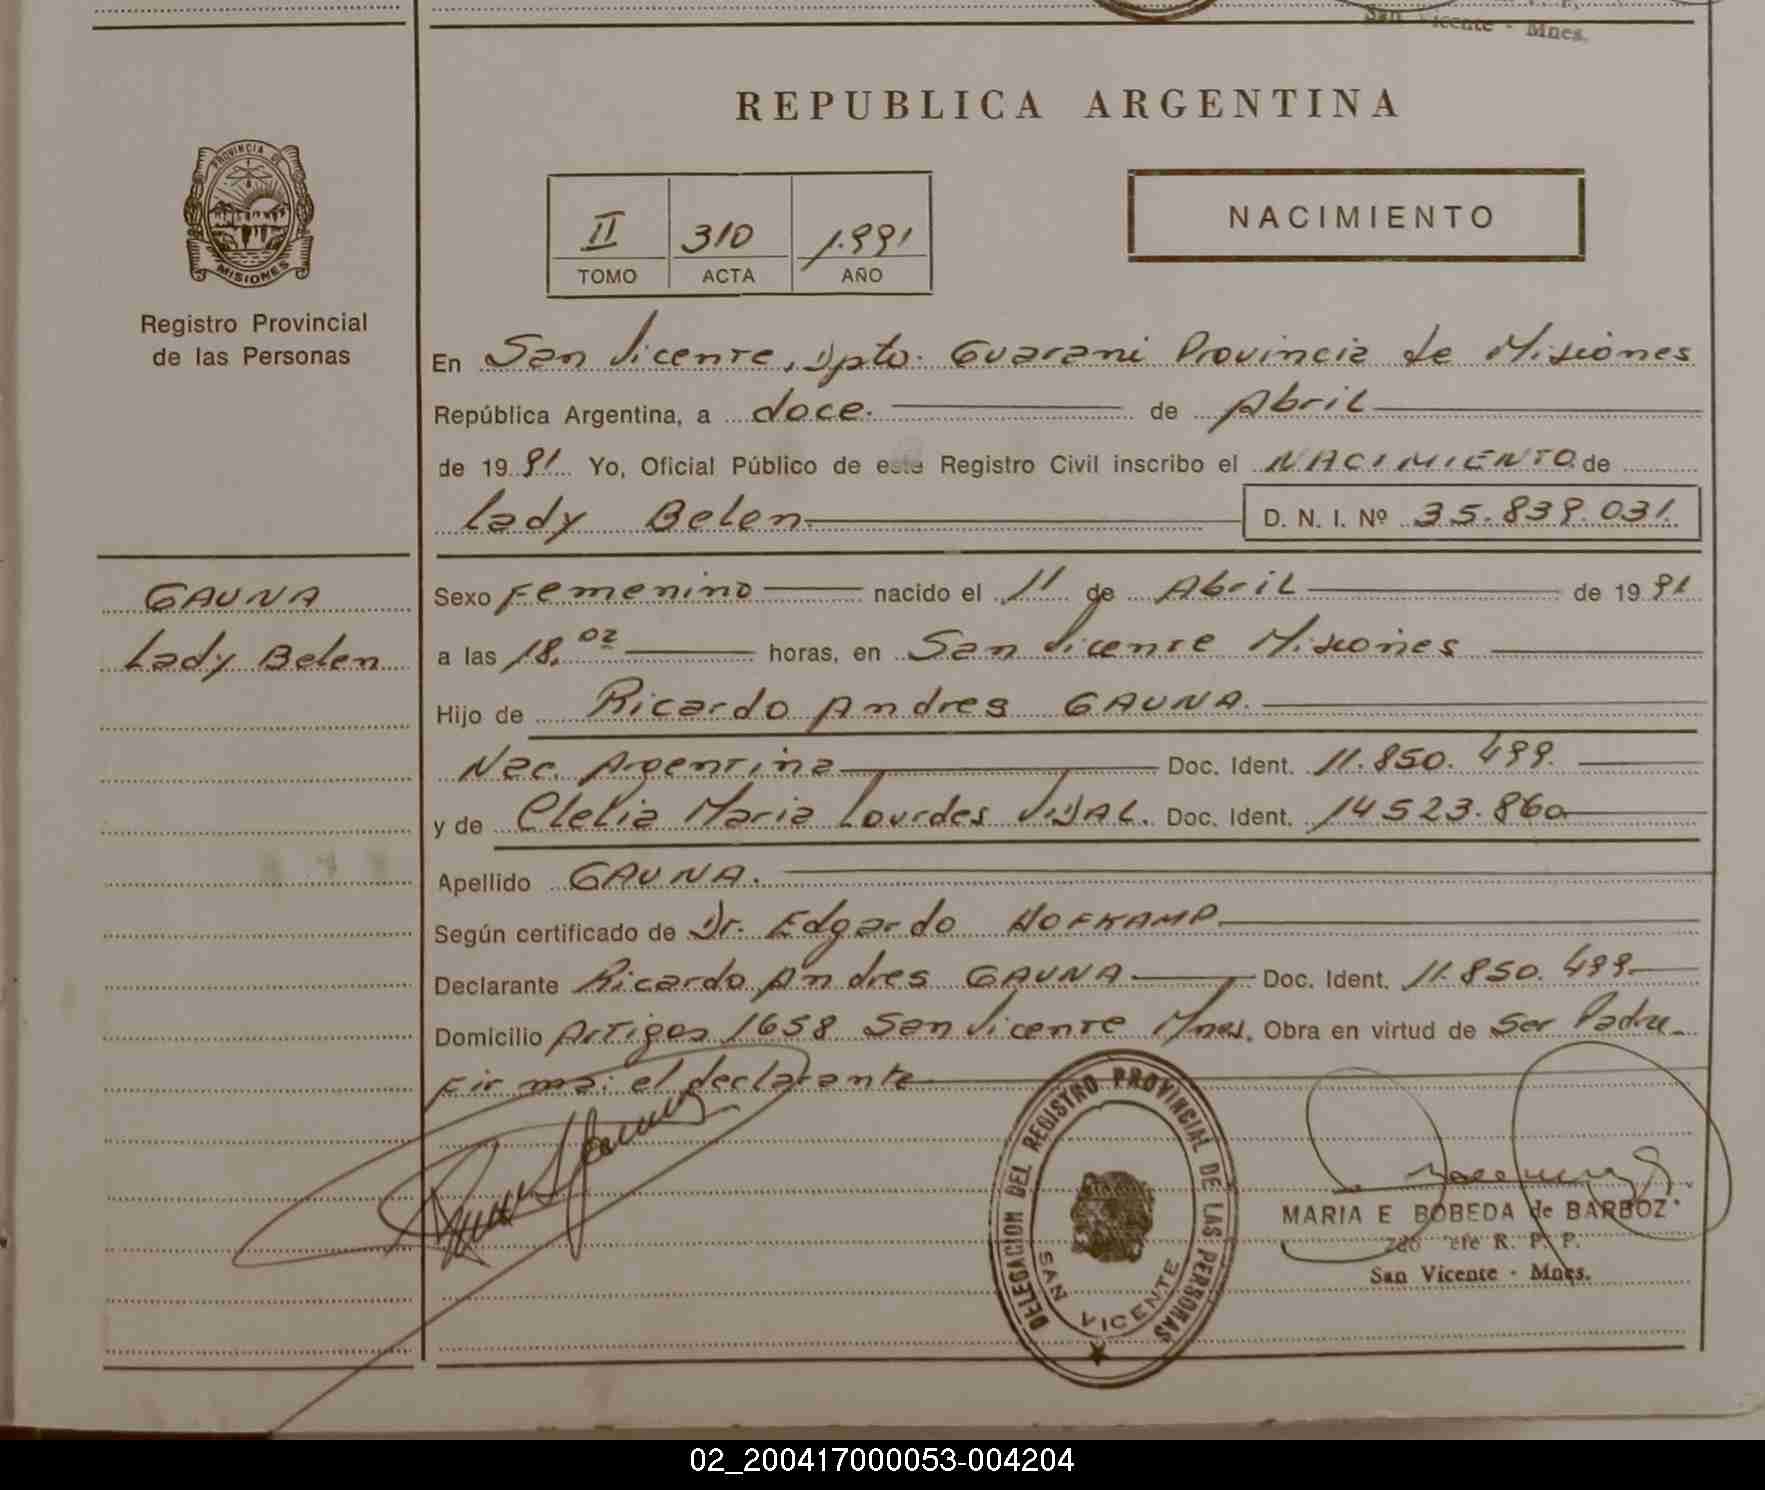 San Vicente - Mnes.
REPUBLICA ARGENTINA
PROVINCIA DE
MISIONES
Registro Provincial
de las Personas
II 310 1.991
TOMO ACTA AÑO
NACIMIENTO
En San Vicente, Dpto. Guarani Provincia de Misiones
República Argentina, a doce. de Abril
de 19 91. Yo, Oficial Público de este Registro Civil inscribo el NACIMIENTO de
Lady Belen
D. N. I. Nº 35.839.031.
GAUNA
Lady Belen
Sexo Femenino nacido el 11 de Abril de 19 91
a las 18,02 horas, en San Vicente Misiones
Hijo de Ricardo Andres GAUNA.
Nac. Argentina Doc. Ident. 11.850.499.
y de Clelia Maria Lourdes VIDAL. Doc. Ident. 14523.860
Apellido GAUNA.
Según certificado de Dr. Edgardo HOFKAMP
Declarante Ricardo Andres GAUNA Doc. Ident. 11.850.499.
Domicilio Artigas 1658 San Vicente Mnes. Obra en virtud de Ser Padre
Firma: el declarante
DELEGACION DEL REGISTRO PROVINCIAL DE LAS PERSONAS
SAN VICENTE
MARIA E BOBEDA de BARBOZ
2do R. P. P.
San Vicente - Mnes.
02_200417000053-004204